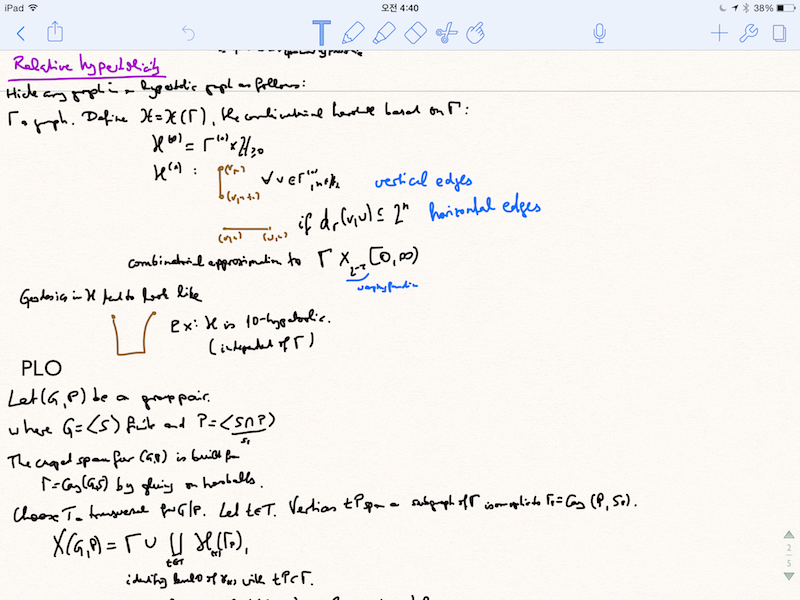 iPad
오전 4:40
38%
Relative hyperbolicity
Hide any graph in a hyperbolic graph as follows:
Γ a graph. Define ℋ=ℋ(Γ), the combinatorial horoball based on Γ:
ℋ⁽⁰⁾ = Γ⁽⁰⁾ × ℤ≥0
ℋ⁽¹⁾ : (v,n) ∀ v∈Γ⁽⁰⁾, vertical edges
(v,n+1)
if d_Γ(v,u) ≤ 2ⁿ horizontal edges
(v,n) (u,n)
combinatorial approximation to Γ ×_{2^{-t}} [0,∞)
warping function
Geodesics in ℋ tend to look like
Ex: ℋ is 10-hyperbolic.
(independent of Γ)
PLO
Let (G,P) be a group pair.
where G=⟨S⟩ finite and P=⟨S∩P⟩
S₀
The cusped space for (G,P) is built from
Γ=Cay(G,S) by gluing on horoballs.
Choose T a transversal for G/P. Let t∈T. Vertices tP span a subgraph of Γ isomorphic to Γ₀=Cay(P,S₀).
X(G,P) = Γ ∪ ∐ ℋ(Γ₀),
t∈T
identifying level 0 of with tP⊂Γ.
2
5